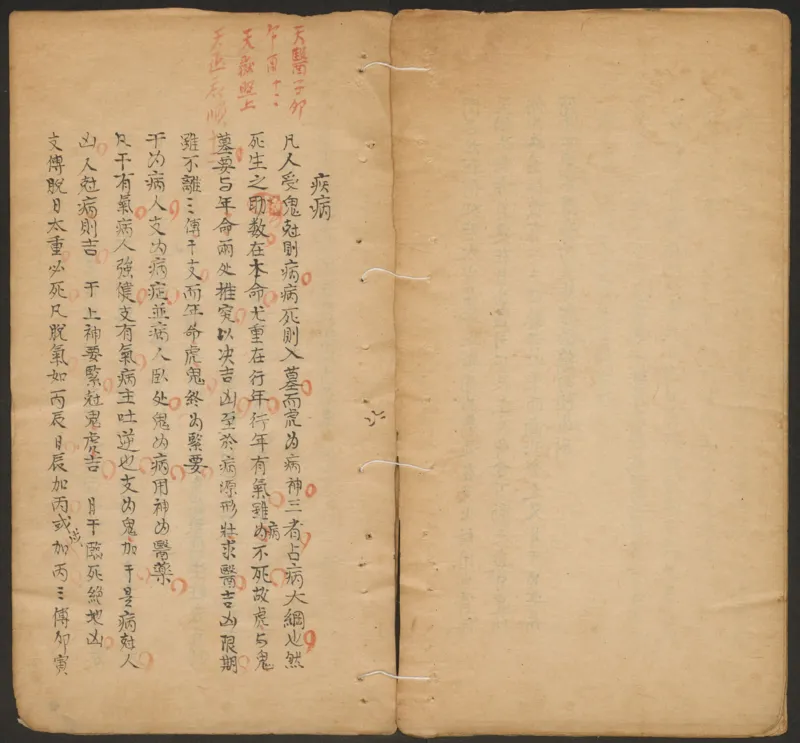 天醫子卯
午酉十二
天喜照上
疾病
凡人受鬼尅則病病死則入墓而虎为病神三者占病大綱也然
死生之助数在本命尤重在行年行年有氣雖病为不死故虎与鬼
墓要与年命兩处推究以决吉凶至於病源形壯求醫吉凶限期
雖不離三傳干支而年命虎鬼終为緊要
干为病人支为病症並病人卧处鬼为病用神为醫藥
凡干有氣病人強健支有氣病主吐逆也支为鬼加干是病尅人
凶人尅病則吉 干上神要緊尅鬼虎吉 日干臨死絕地凶
支傳脫日太重必死凡脫氣如丙辰日辰加丙或戌加丙三傳卯寅